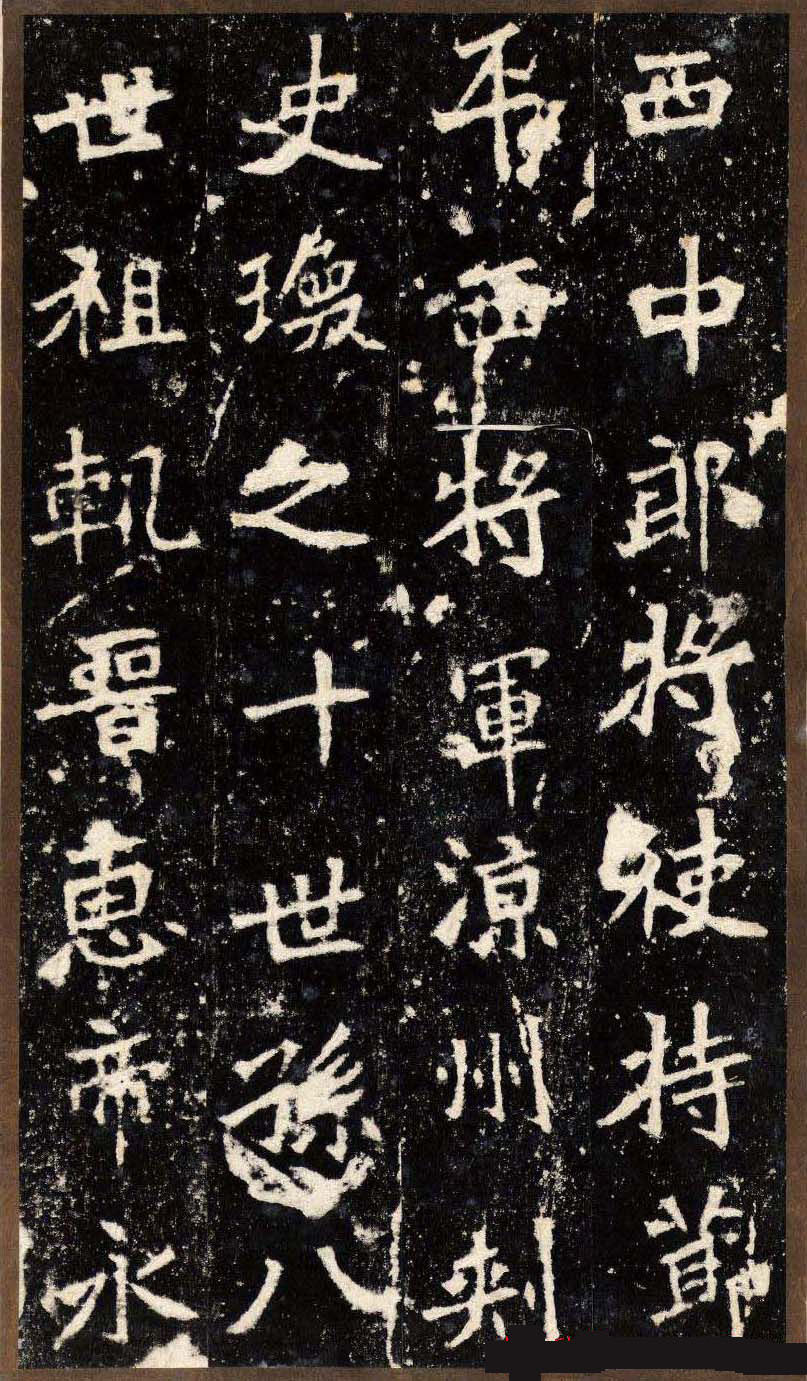 西中郎將使持莭
平西將軍涼州刾
史瓊之十世孫八
世祖軌晉惠帝永